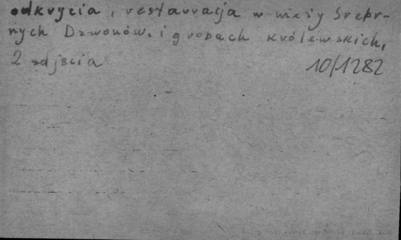 odkrycia, restauracja w wieży Srebr-
nych Dzwonów, i grobach królewskich,
2 zdjęcia 10/1282